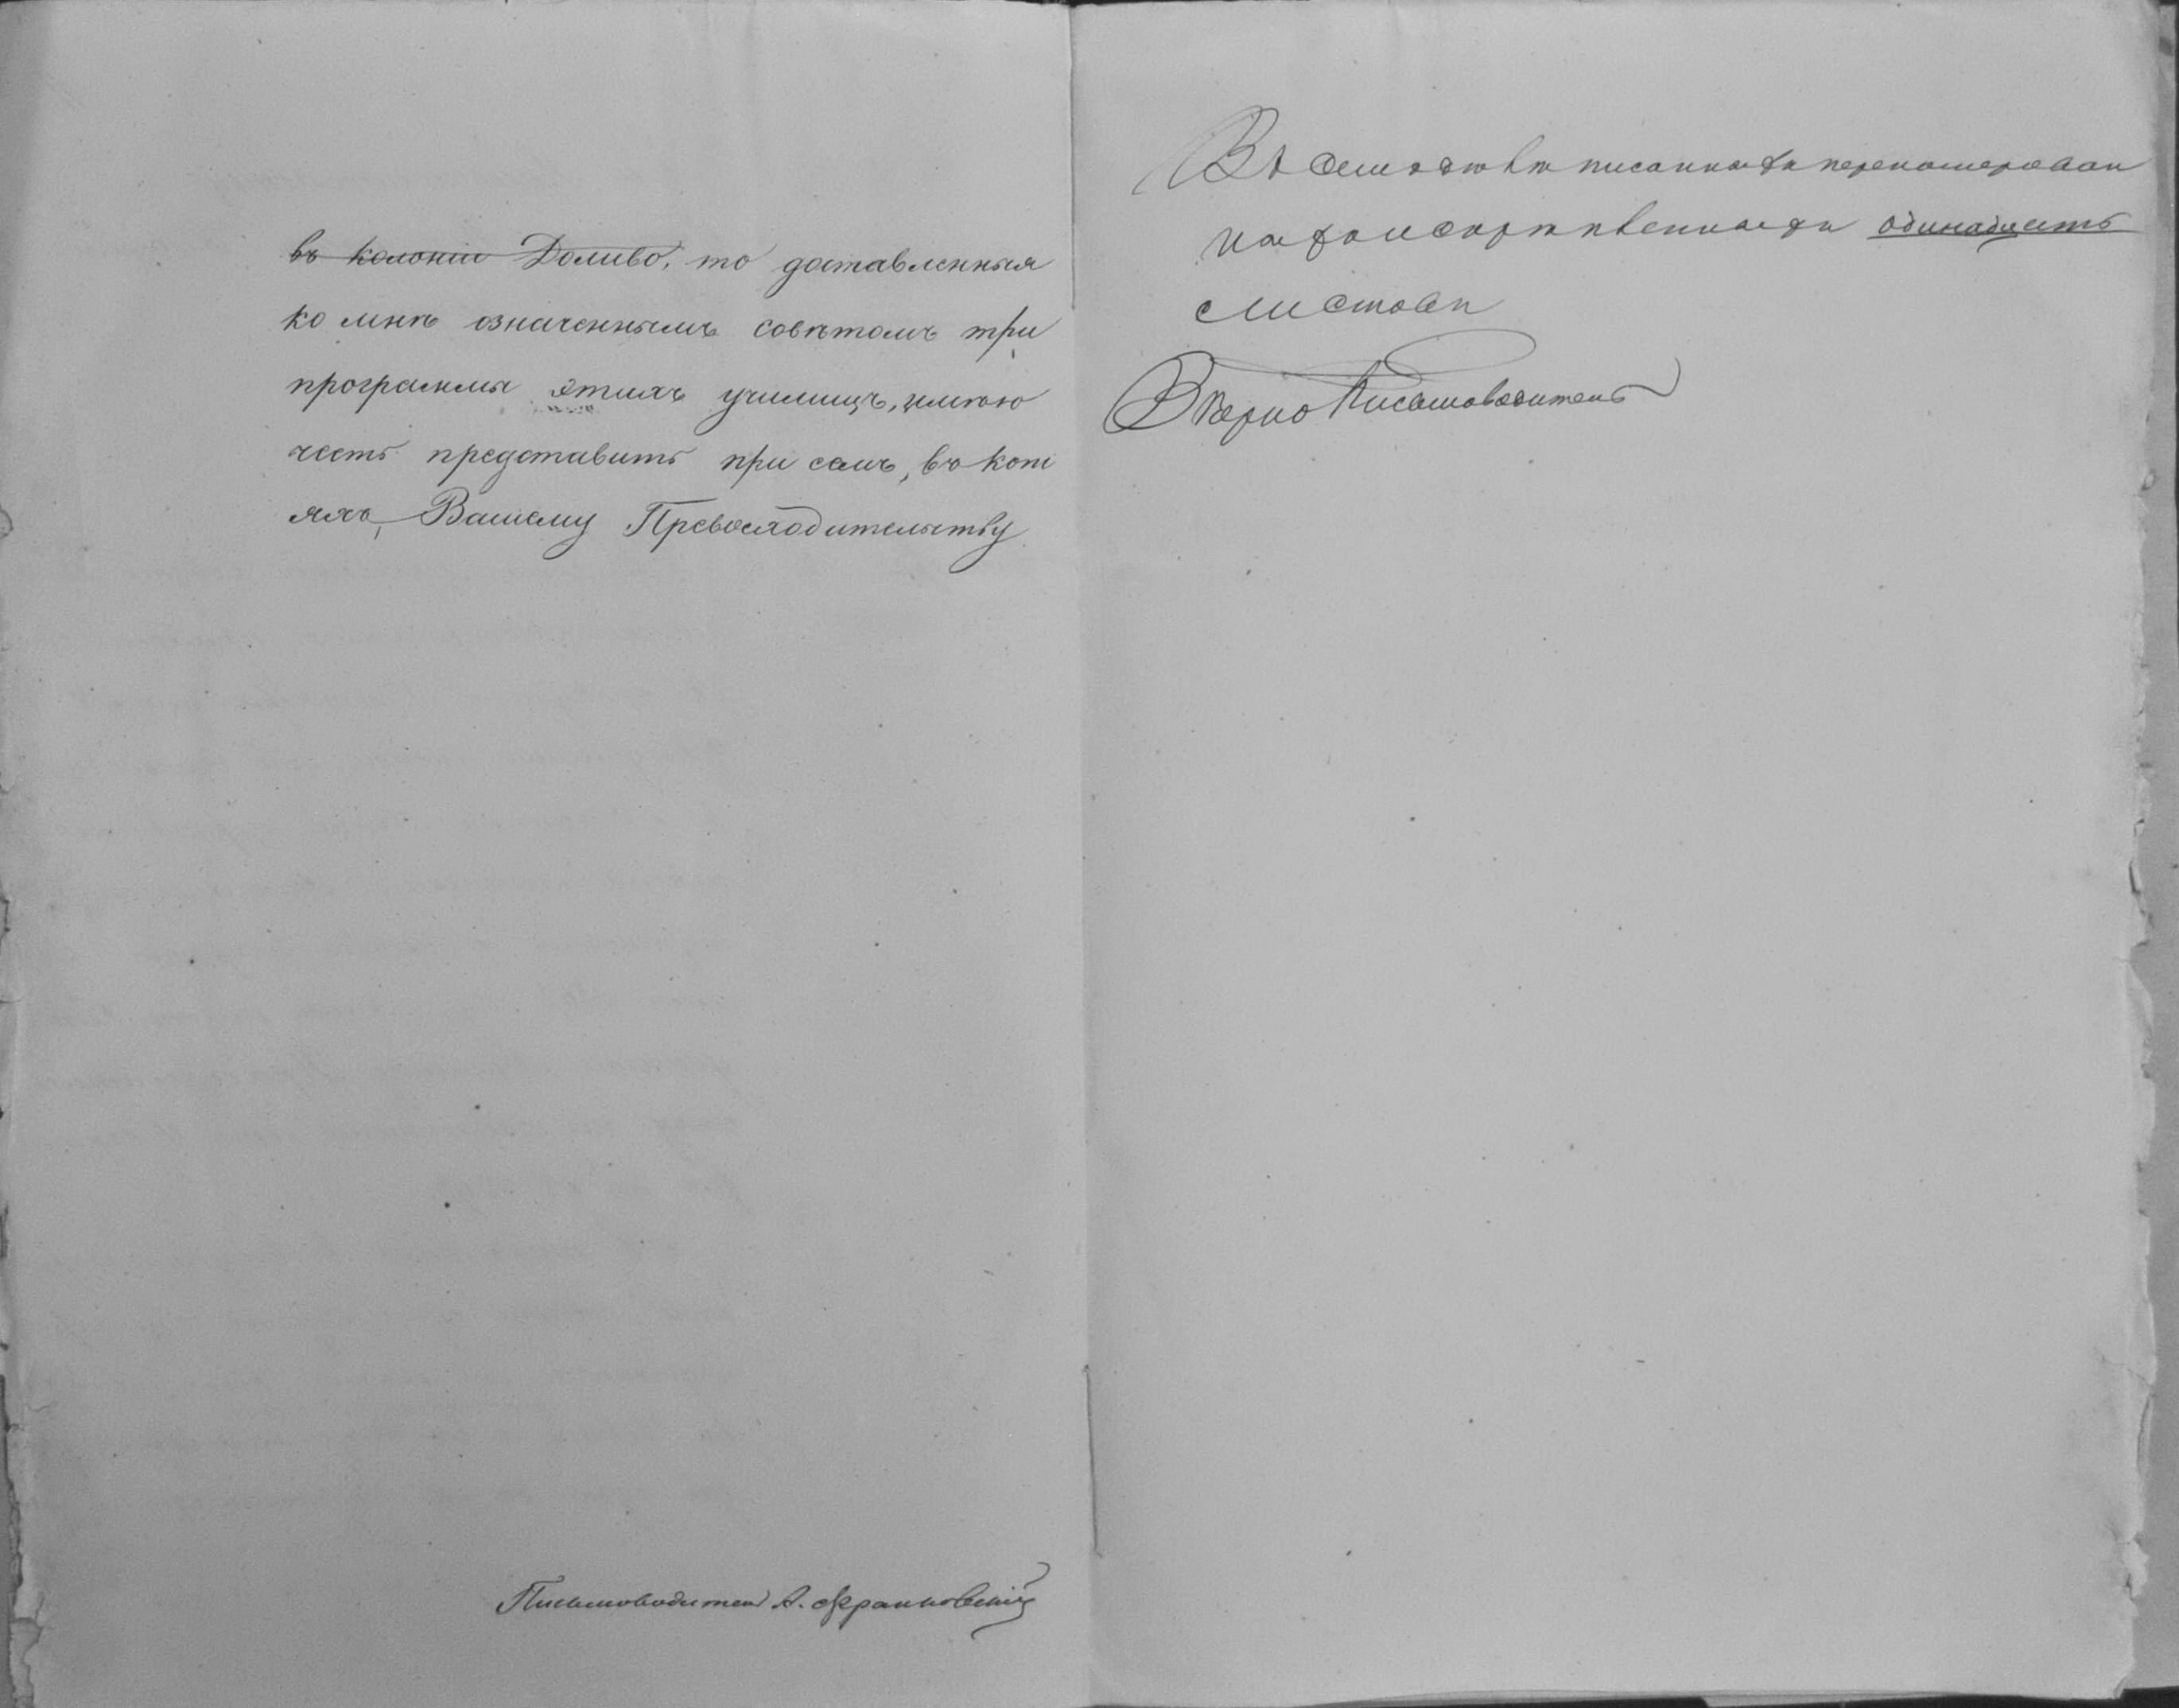 въ колоніи Доливо, то доставленныя
ко мнѣ означеннымъ совѣтомъ три
программы этихъ училищъ, имѣю
честь представить при семъ, въ копі
яхъ, Вашему Превосходительству
Письмоводитель А. Франковскій
Въ семъ дѣлѣ писанныхъ перенумерован
ныхъ и скрѣпленныхъ одинадцать
листовъ
Вѣрно Письмоводитель